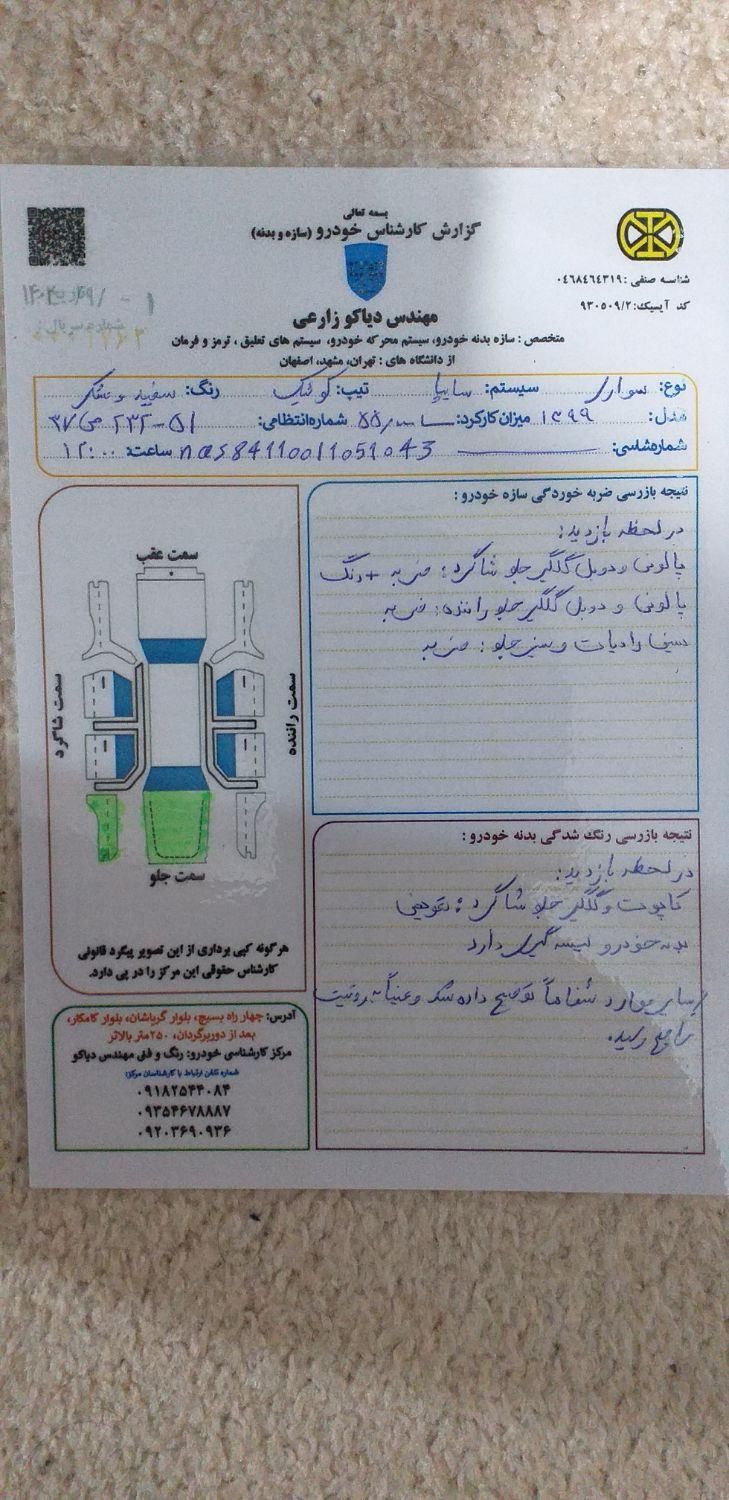 بسمه تعالی
گزارش کارشناس خودرو (سازه و بدنه)
شناسه صنفی : ۰۴۶۸۴۶۴۳۱۹
کد آیسیک: ۹۳۰۵۰۹/۲
مهندس دیاکو زارعی
متخصص : سازه بدنه خودرو، سیستم محرکه خودرو، سیستم های تعلیق ، ترمز و فرمان
از دانشگاه های : تهران، مشهد، اصفهان
نوع: سواری سیستم: سایپا تیپ: کوئیک رنگ: سفید و مشکی
مدل: ۱۳۹۹ میزان کارکرد: شماره انتظامی: ۵۱-۲۳۲
شماره شاسی: nas841100l1051043 ساعت: ۱۲:۰۰
نتیجه بازرسی ضربه خوردگی سازه خودرو :
در لحظه بازدید:
پالونی و دوبل گلگیر جلو شاگرد: ضربه + رنگ
پالونی و دوبل گلگیر جلو راننده: ضربه
سینی رادیات و سینی جلو: ضربه
سمت عقب
سمت شاگرد
سمت راننده
سمت جلو
هرگونه کپی برداری از این تصویر پیگرد قانونی
کارشناس حقوقی این مرکز را در پی دارد.
نتیجه بازرسی رنگ شدگی بدنه خودرو :
در لحظه بازدید:
کاپوت و گلگیر جلو شاگرد: تعویض
بدنه خودرو لیسه گیری دارد
سایر موارد شفاهاً توضیح داده شد و عیناً به رویت
آدرس: چهار راه بسیج، بلوار گریاشان، بلوار کامکار،
بعد از دوربرگردان، ۲۵۰متر بالاتر
مرکز کارشناسی خودرو: رنگ و فنی مهندس دیاکو
شماره تلفن ارتباط با کارشناسان مرکز:
۰۹۱۸۲۵۴۴۰۸۴
۰۹۳۵۴۶۷۸۸۸۷
۰۹۲۰۳۶۹۰۹۳۶